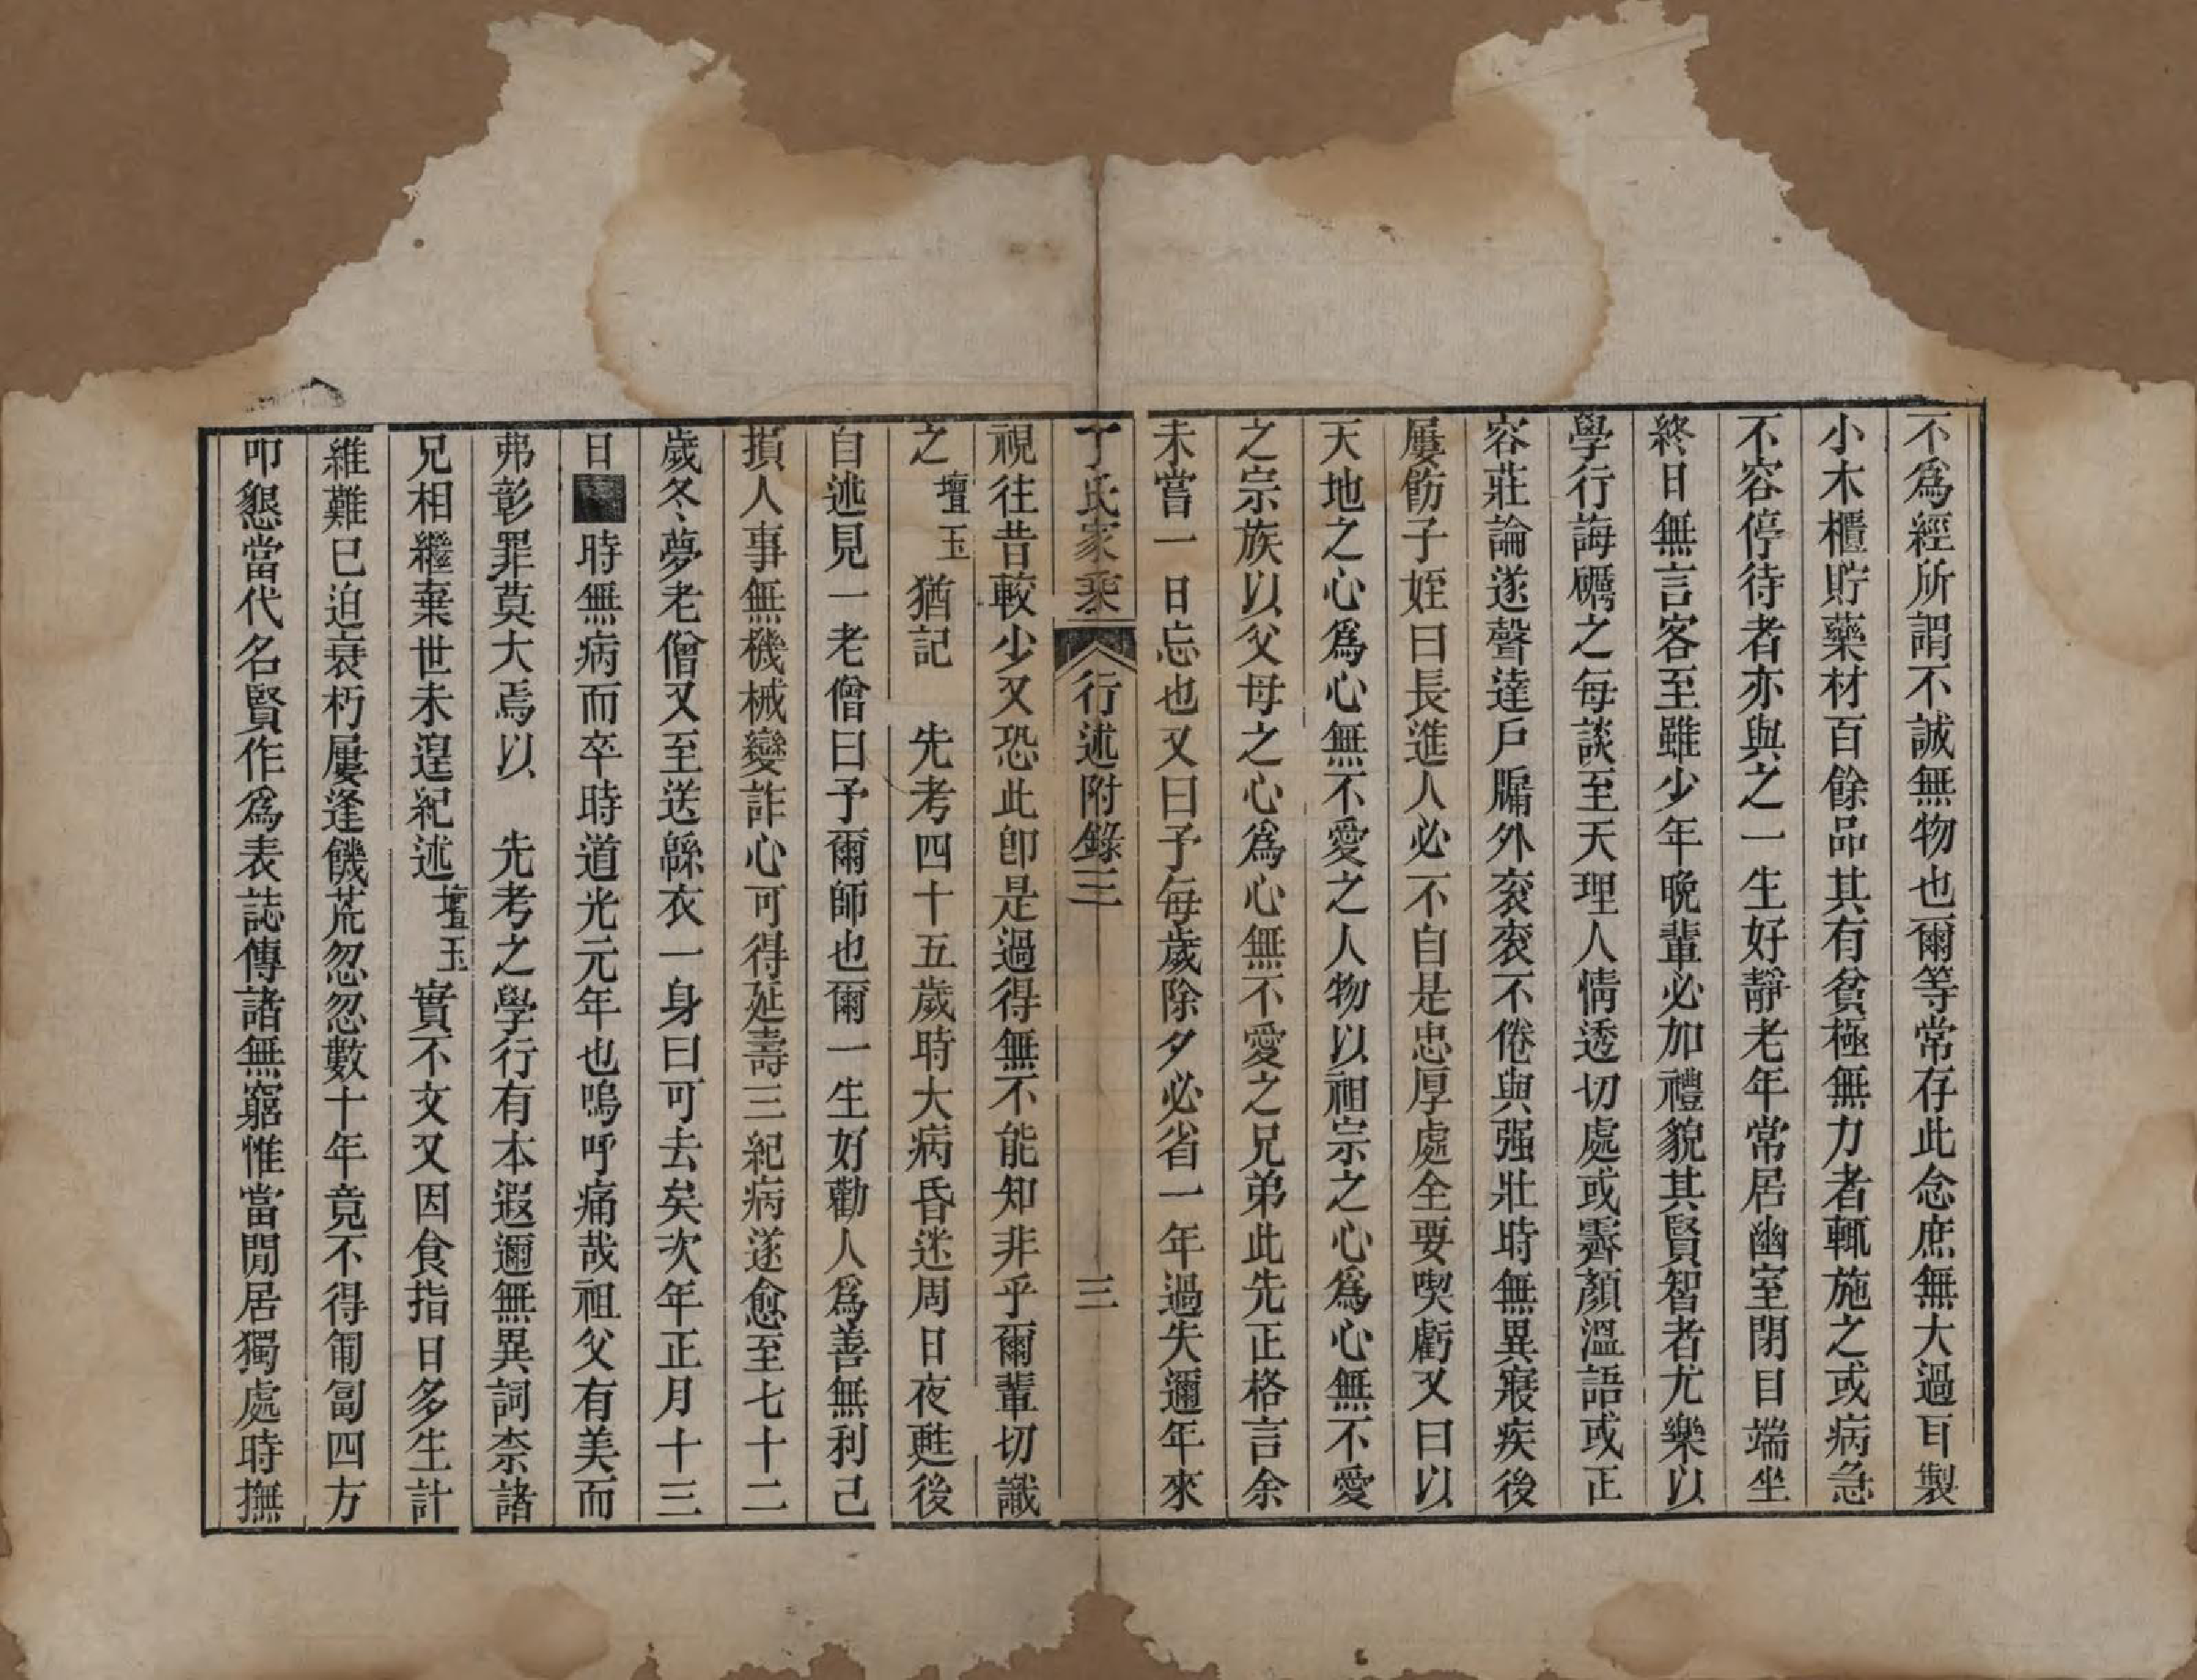 不爲經所謂不誠無物也爾等常存此念庶無大過耳製
小木櫃貯藥材百餘品其有貧極無力者輒施之或病急
不容停待者亦與之一生好靜老年常居幽室閉目端坐
終日無言客至雖少年晚輩必加禮貌其賢智者尤樂以
學行誨礪之每談至天理人情透切處或霽顏溫語或正
容莊論遂聲達戶牖外袞袞不倦與强壯時無異寢疾後
屢飭子姪曰長進人必不自是忠厚處全要喫虧又曰以
天地之心爲心無不愛之人物以祖宗之心爲心無不愛
之宗族以父母之心爲心無不愛之兄弟此先正格言余
未嘗一日忘也又曰予每歲除夕必省一年過失邇年來
丁氏家乘 行述附錄三 三
視往昔較少又恐此卽是過得無不能知非乎爾輩切識
之壇玉猶記 先考四十五歲時大病昏迷周日夜甦後
自述見一老僧曰予爾師也爾一生好勸人爲善無利己
損人事無機械變詐心可得延壽三紀病遂愈至七十二
歲冬夢老僧又至送緜衣一身曰可去矣次年正月十三
日 時無病而卒時道光元年也嗚呼痛哉祖父有美而
弗彰罪莫大焉以 先考之學行有本遐邇無異詞柰諸
兄相繼棄世未遑紀述壇玉實不文又因食指日多生計
維難已迫衰朽屢逢饑荒忽忽數十年竟不得匍匐四方
叩懇當代名賢作爲表誌傳諸無窮惟當閒居獨處時撫